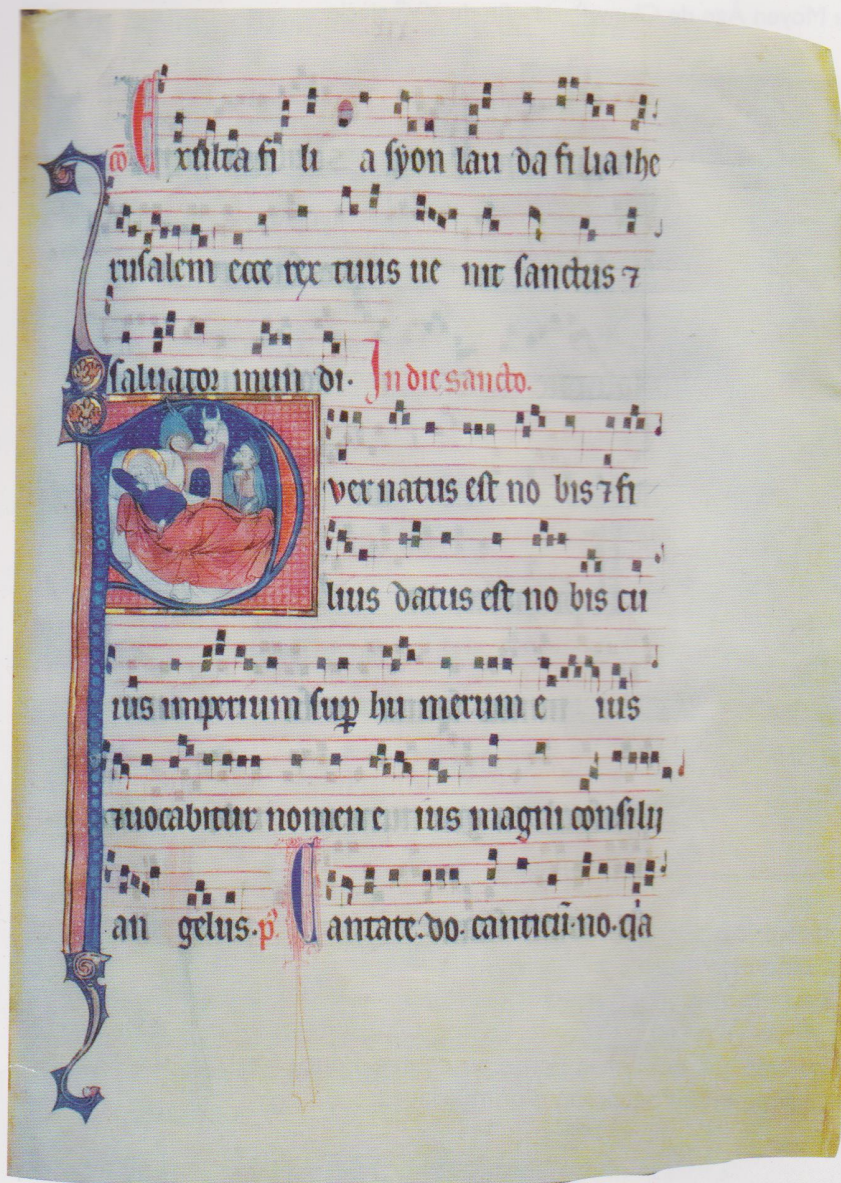 cō Exulta fi li a syon lau da fi lia ihe
rusalem ecce rex tuus ue nit sanctus ⁊
saluator mun di. In die sancto.
Puer natus est no bis ⁊ fi
lius datus est no bis cu
ius imperium suꝑ hu merum e ius
⁊ uocabitur nomen e ius magni consilij
an gelus. pˢ. Cantate. do. canticū. no. q̇a